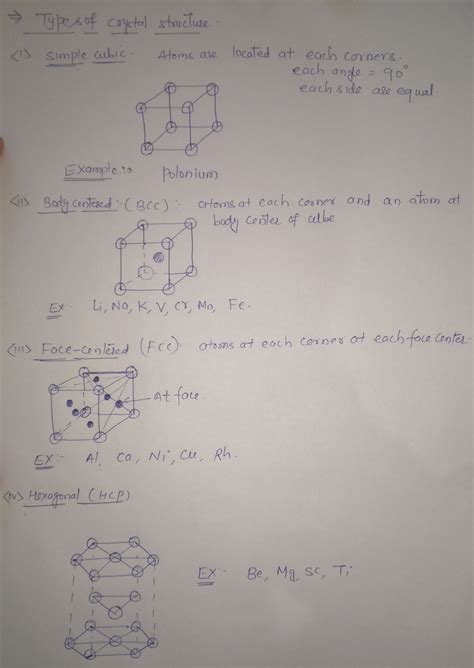 → Types of crystal structure.
<i> Simple cubic - Atoms are located at each corners.
each angle = 90°
each side are equal.
Example :- Polonium
<ii> Body centered :- (BCC) : atoms at each corner and an atom at
body center of cube
Ex:- Li, Na, K, V, Cr, Mn, Fe.
<iii> Face-centered (FCC): atoms at each corner at each face center.
At face.
EX:- Al, Ca, Ni, Cu, Rh.
<iv> Hexagonal (HCP)
EX:- Be, Mg, Sc, Ti